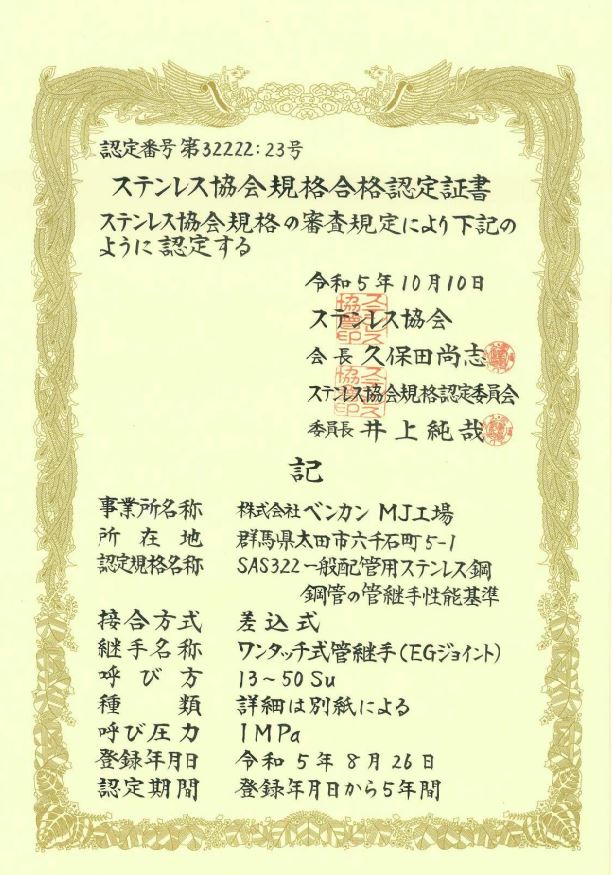 認定番号 第32222:23号
ステンレス協会規格合格認定証書
ステンレス協会規格の審査規定により下記の
ように認定する
令和5年10月10日
ステンレス協会
会長 久保田尚志
ステンレス協会規格認定委員会
委員長 井上純哉
記
事業所名称 株式会社ベンカン MJ工場
所在地 群馬県太田市六千石町5-1
認定規格名称 SAS322 一般配管用ステンレス鋼
鋼管の管継手性能基準
接合方式 差込式
継手名称 ワンタッチ式管継手(EGジョイント)
呼び方 13~50Su
種類 詳細は別紙による
呼び圧力 1MPa
登録年月日 令和5年8月26日
認定期間 登録年月日から5年間